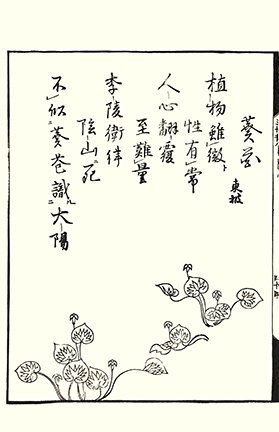 葵花
東坡
植物雖微
性有常
人心翻覆
至難量
李陵衛律
陰山死
不似葵花識大陽